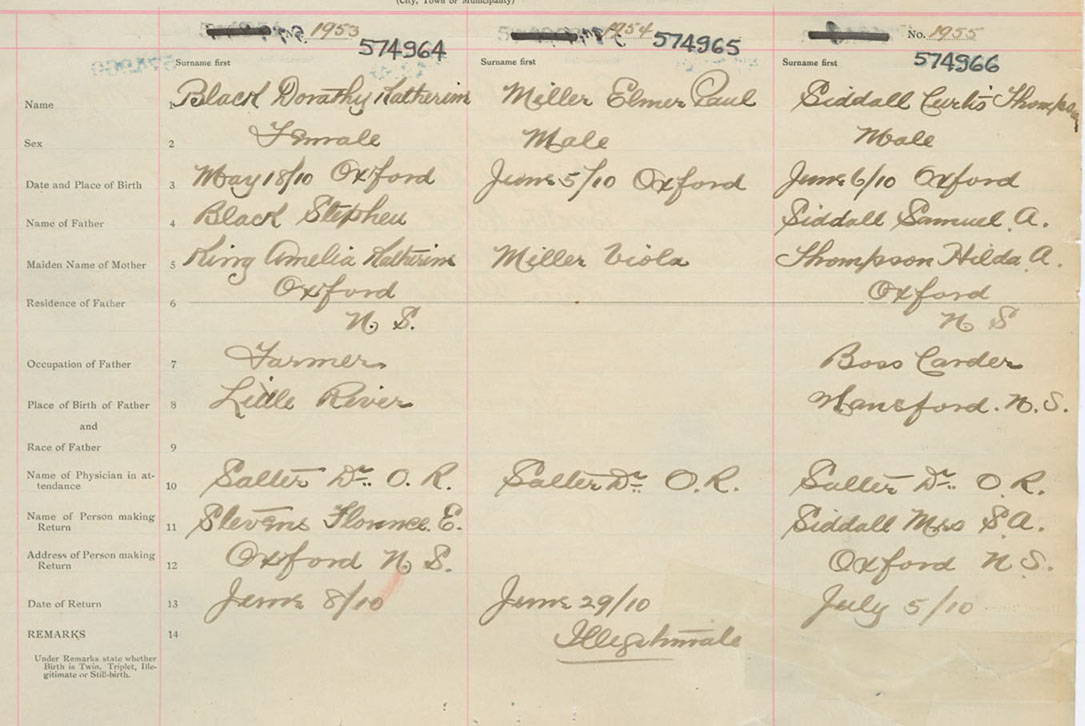 (City, Town or Municipality)
1953 1954 No. 1955
574964 574965 574966
Surname first Surname first Surname first
Name 1 Black Dorathy Katherine Miller Elmer Paul Siddall Curtis Thompson
Sex 2 Female Male Male
Date and Place of Birth 3 May 18/10 Oxford June 5/10 Oxford June 6/10 Oxford
Name of Father 4 Black Stephen Siddall Samuel A.
Maiden Name of Mother 5 King Amelia Katherine Miller Viola Thompson Hilda A.
Residence of Father 6 Oxford Oxford
N. S. N S
Occupation of Father 7 Farmer Boss Carder
Place of Birth of Father 8 Little River Hansford. N. S.
and
Race of Father 9
Name of Physician in at-
tendance 10 Salter Dr. O. R. Salter Dr. O. R. Salter Dr. O. R.
Name of Person making
Return 11 Stevens Florence E. Siddall Mrs S. A.
Address of Person making
Return 12 Oxford N. S. Oxford N. S.
Date of Return 13 June 8/10 June 29/10 July 5/10
REMARKS 14 Illegitimate
Under Remarks state whether
Birth is Twin, Triplet, Ille-
gitimate or Still-birth.